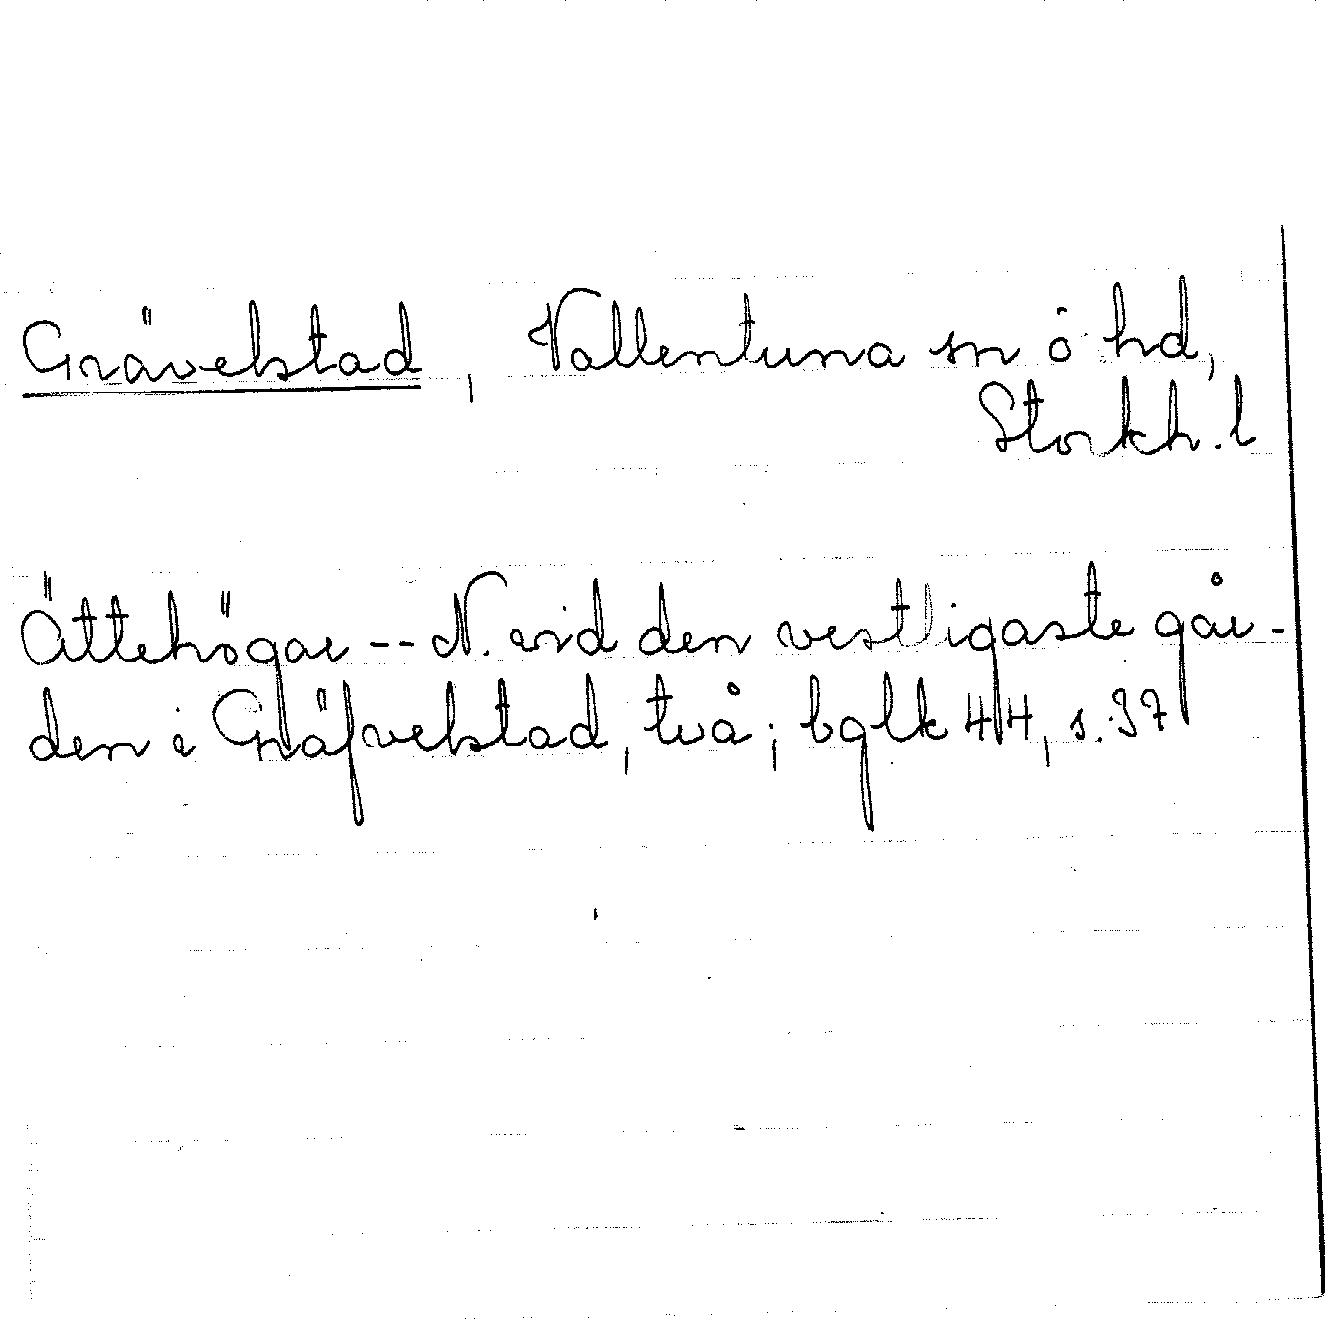 Grävelstad, Vallentuna sn o hd,
Stockh. l
Ättehögar -- N. vid den vestligaste går-
den i Gräfvelstad, två; bglk 44, s. 37